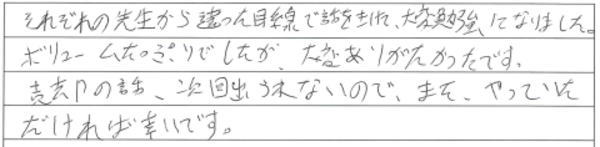 それぞれの先生から違った目線で話をきけ、大変勉強になりました。
ボリュームたっぷりでしたが、大変ありがたかったです。
の話、次回出られないので、また、やっていた
だければ幸いです。